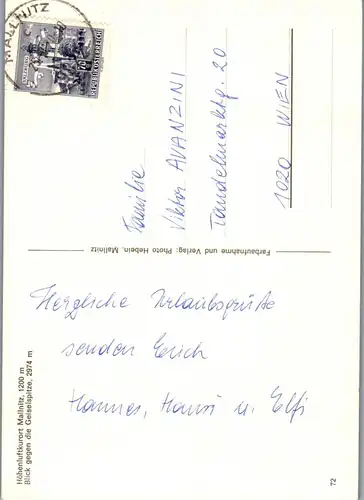 MALLNITZ
REPUBLIK ÖSTERREICH
Familie
Viktor AVANZINI
Tandelmarktg. 20
1020 WIEN
Farbaufnahme und Verlag: Photo Hebein, Mallnitz
Herzliche Urlaubsgrüße
senden Erich
Hannes, Hansi u. Elfi
Höhenluftkurort Mallnitz, 1200 m
Blick gegen die Geiselspitze, 2974 m
72